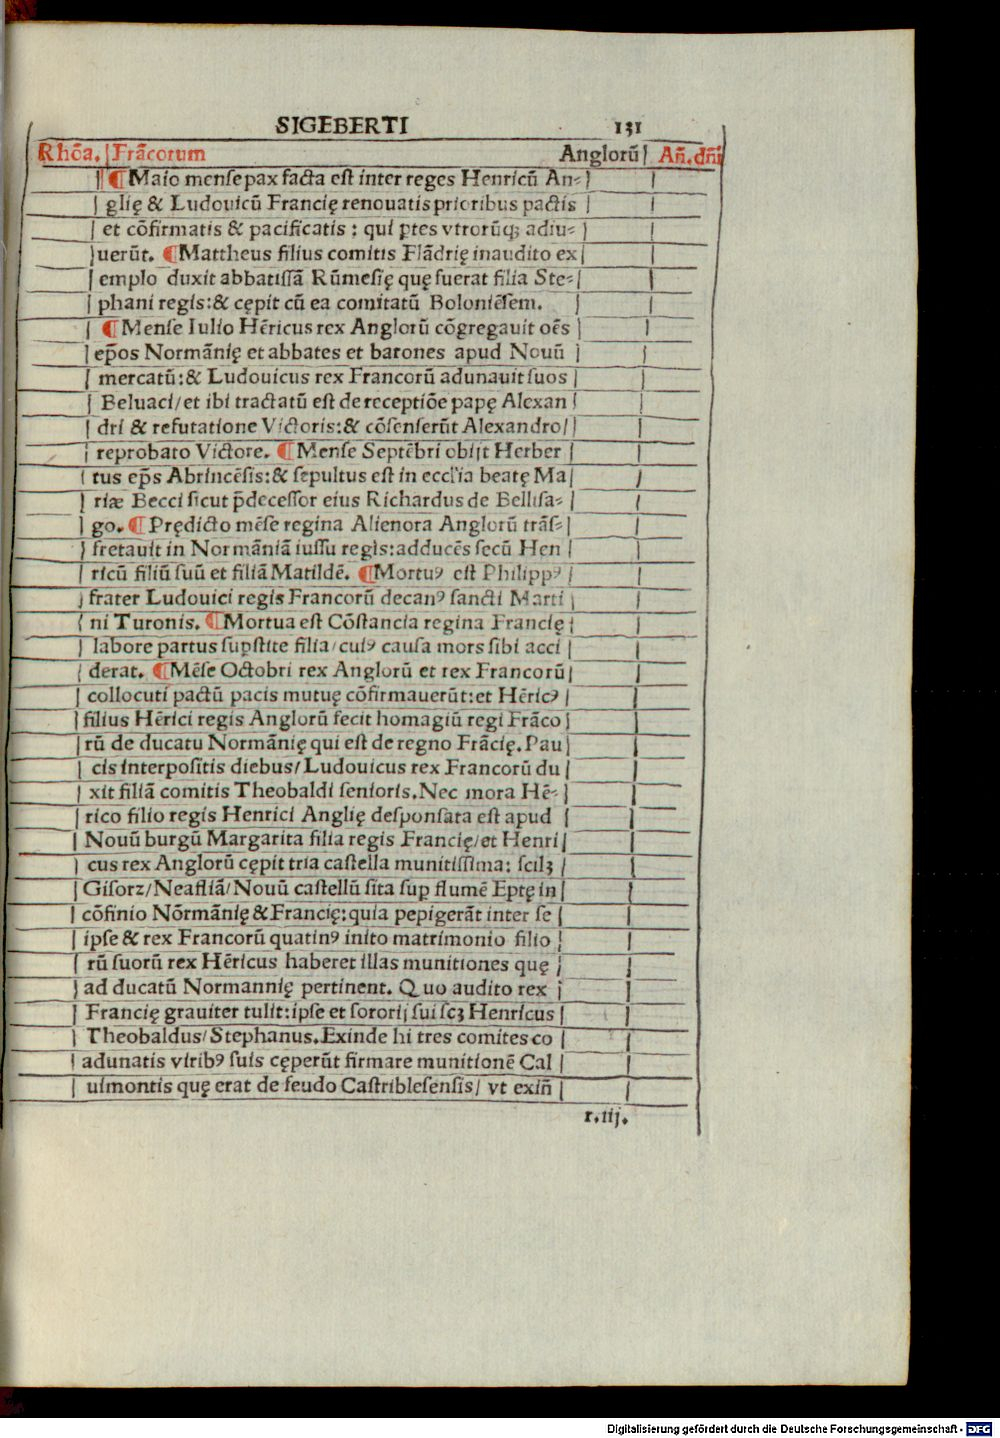 SIGEBERTI 131
Rhõa. Frãcorum Anglorũ Añ.dñi
¶Maio mense pax facta est inter reges Henricũ An-
glię & Ludouicũ Francię renouatis prioribus pactis
et cõfirmatis & pacificatis : qui ꝑtes vtrorũq; adiu-
uerũt. ¶Mattheus filius comitis Flãdrię inaudito ex
emplo duxit abbatissã Rũmesię quę fuerat filia Ste-
phani regis:& cępit cũ ea comitatũ Boloniẽsem.
¶Mense Iulio Hẽricus rex Anglorũ cõgregauit oẽs
ep̃os Normãnię et abbates et barones apud Nouũ
mercatũ:& Ludouicus rex Francorũ adunauit suos
Beluaci/et ibi tractatũ est de receptiõe papę Alexan
dri & refutatione Victoris:& cõsenserũt Alexandro/
reprobato Victore. ¶Mense Septẽbri obijt Herber
tus ep̃s Abrincẽsis:& sepultus est in ecclia beatę Ma
riæ Becci sicut p̃decessor eius Richardus de Bellisa-
go. ¶Prędicto mẽse regina Alienora Anglorũ trãs-
fretauit in Normãniã iussu regis:adducẽs secũ Hen
ricũ filiũ suũ et filiã Matildẽ. ¶Mortuꝰ est Philippꝰ
frater Ludouici regis Francorũ decanꝰ sancti Marti
ni Turonis. ¶Mortua est Cõstancia regina Francię
labore partus suꝑstite filia/cuiꝰ causa mors sibi acci
derat. ¶Mẽse Octobri rex Anglorũ et rex Francorũ
collocuti pactũ pacis mutuę cõfirmauerũt:et Hẽricꝰ
filius Hẽrici regis Anglorũ fecit homagiũ regi Frãco
rũ de ducatu Normãnię qui est de regno Frãcię. Pau
cis interpositis diebus/Ludouicus rex Francorũ du
xit filiã comitis Theobaldi senioris. Nec mora Hẽ-
rico filio regis Henrici Anglię desponsata est apud
Nouũ burgũ Margarita filia regis Francię/et Henri
cus rex Anglorũ cępit tria castella munitissima: scilꝫ
Gisorz/Neafliã/Nouũ castellũ sita suꝑ flumẽ Eptę in
cõfinio Nõrmãnię & Francię:quia pepigerãt inter se
ipse & rex Francorũ quatinꝰ inito matrimonio filio
rũ suorũ rex Hẽricus haberet illas munitiones quę
ad ducatũ Normannię pertinent. Quo audito rex
Francię grauiter tulit:ipse et sororij sui scꝫ Henricus
Theobaldus/Stephanus. Exinde hi tres comites co
adunatis viribꝰ suis cęperũt firmare munitionẽ Cal
uimontis quę erat de feudo Castriblesensis/ vt exiñ
r.iij.
Digitalisierung gefördert durch die Deutsche Forschungsgemeinschaft - DFG